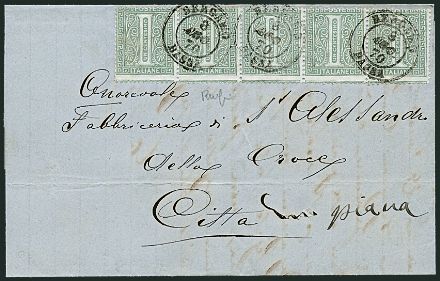 BERGAMO
8
70
BASSA
BERGAMO
8
70
BASSA
BERGAMO
8
70
BASSA
ITALIANE
ITALIANE
ITALIANE
ITALIANE
Onorevole
Fabbriceria di S. Alessandro
della Croce
Città
piana